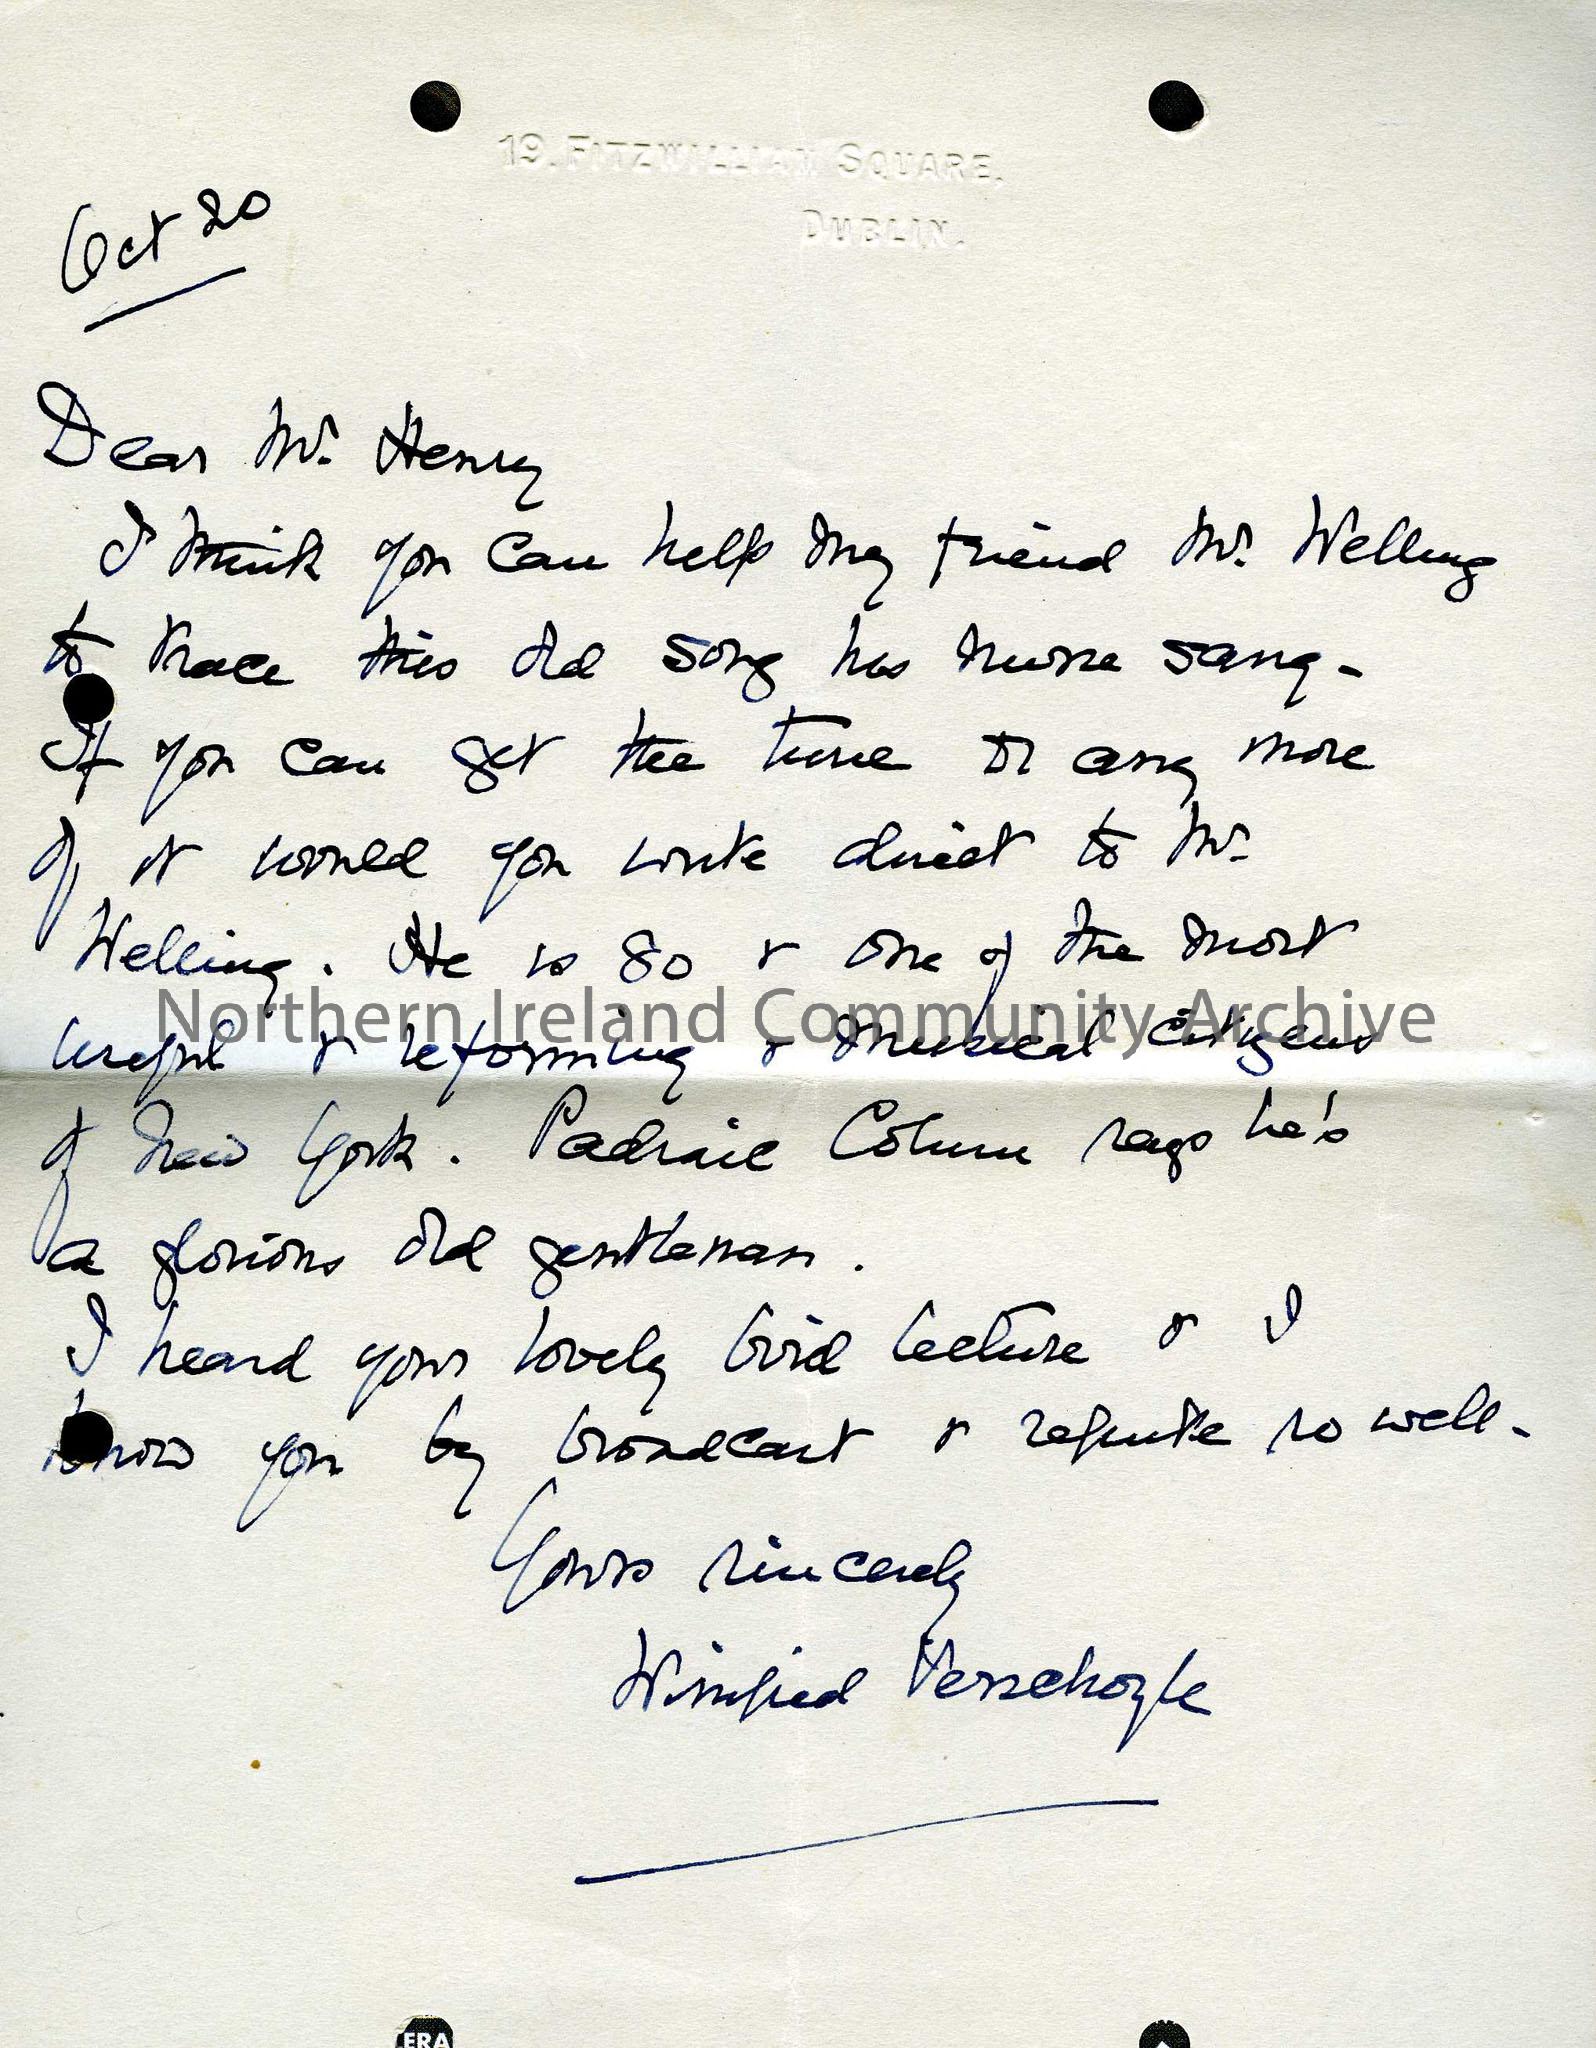 19. FITZWILLIAM SQUARE,
DUBLIN.
Oct 20
Dear Mr. Henry
I think you can help my friend Mr. Welling
to trace this old song his nurse sang -
If you can get the tune or any more
of it would you write direct to Mr.
Welling. He is 80 & one of the most
useful & reforming & musical citizens
Northern Ireland Community Archive
of New York. Padraic Colum says he's
a glorious old gentleman.
I heard your lovely bird lecture & I
know you by broadcast & repute so well -
Yours sincerely
Winifred Verschoyle
ERA